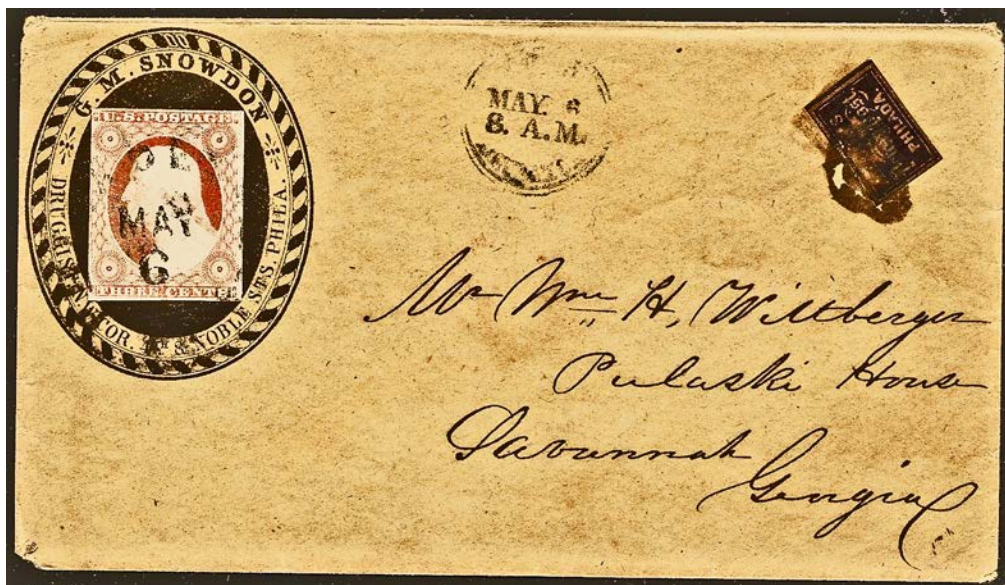 G. M. SNOWDON
DRUGGIST N.W. COR. & NOBLE STS. PHILA.
U.S. POSTAGE
THREE CENTS
MAY
6
MAY 6
8. A.M.
PHILADA
Mr Wm H, Wiltberger
Pulaski House
Savannah
Georgia